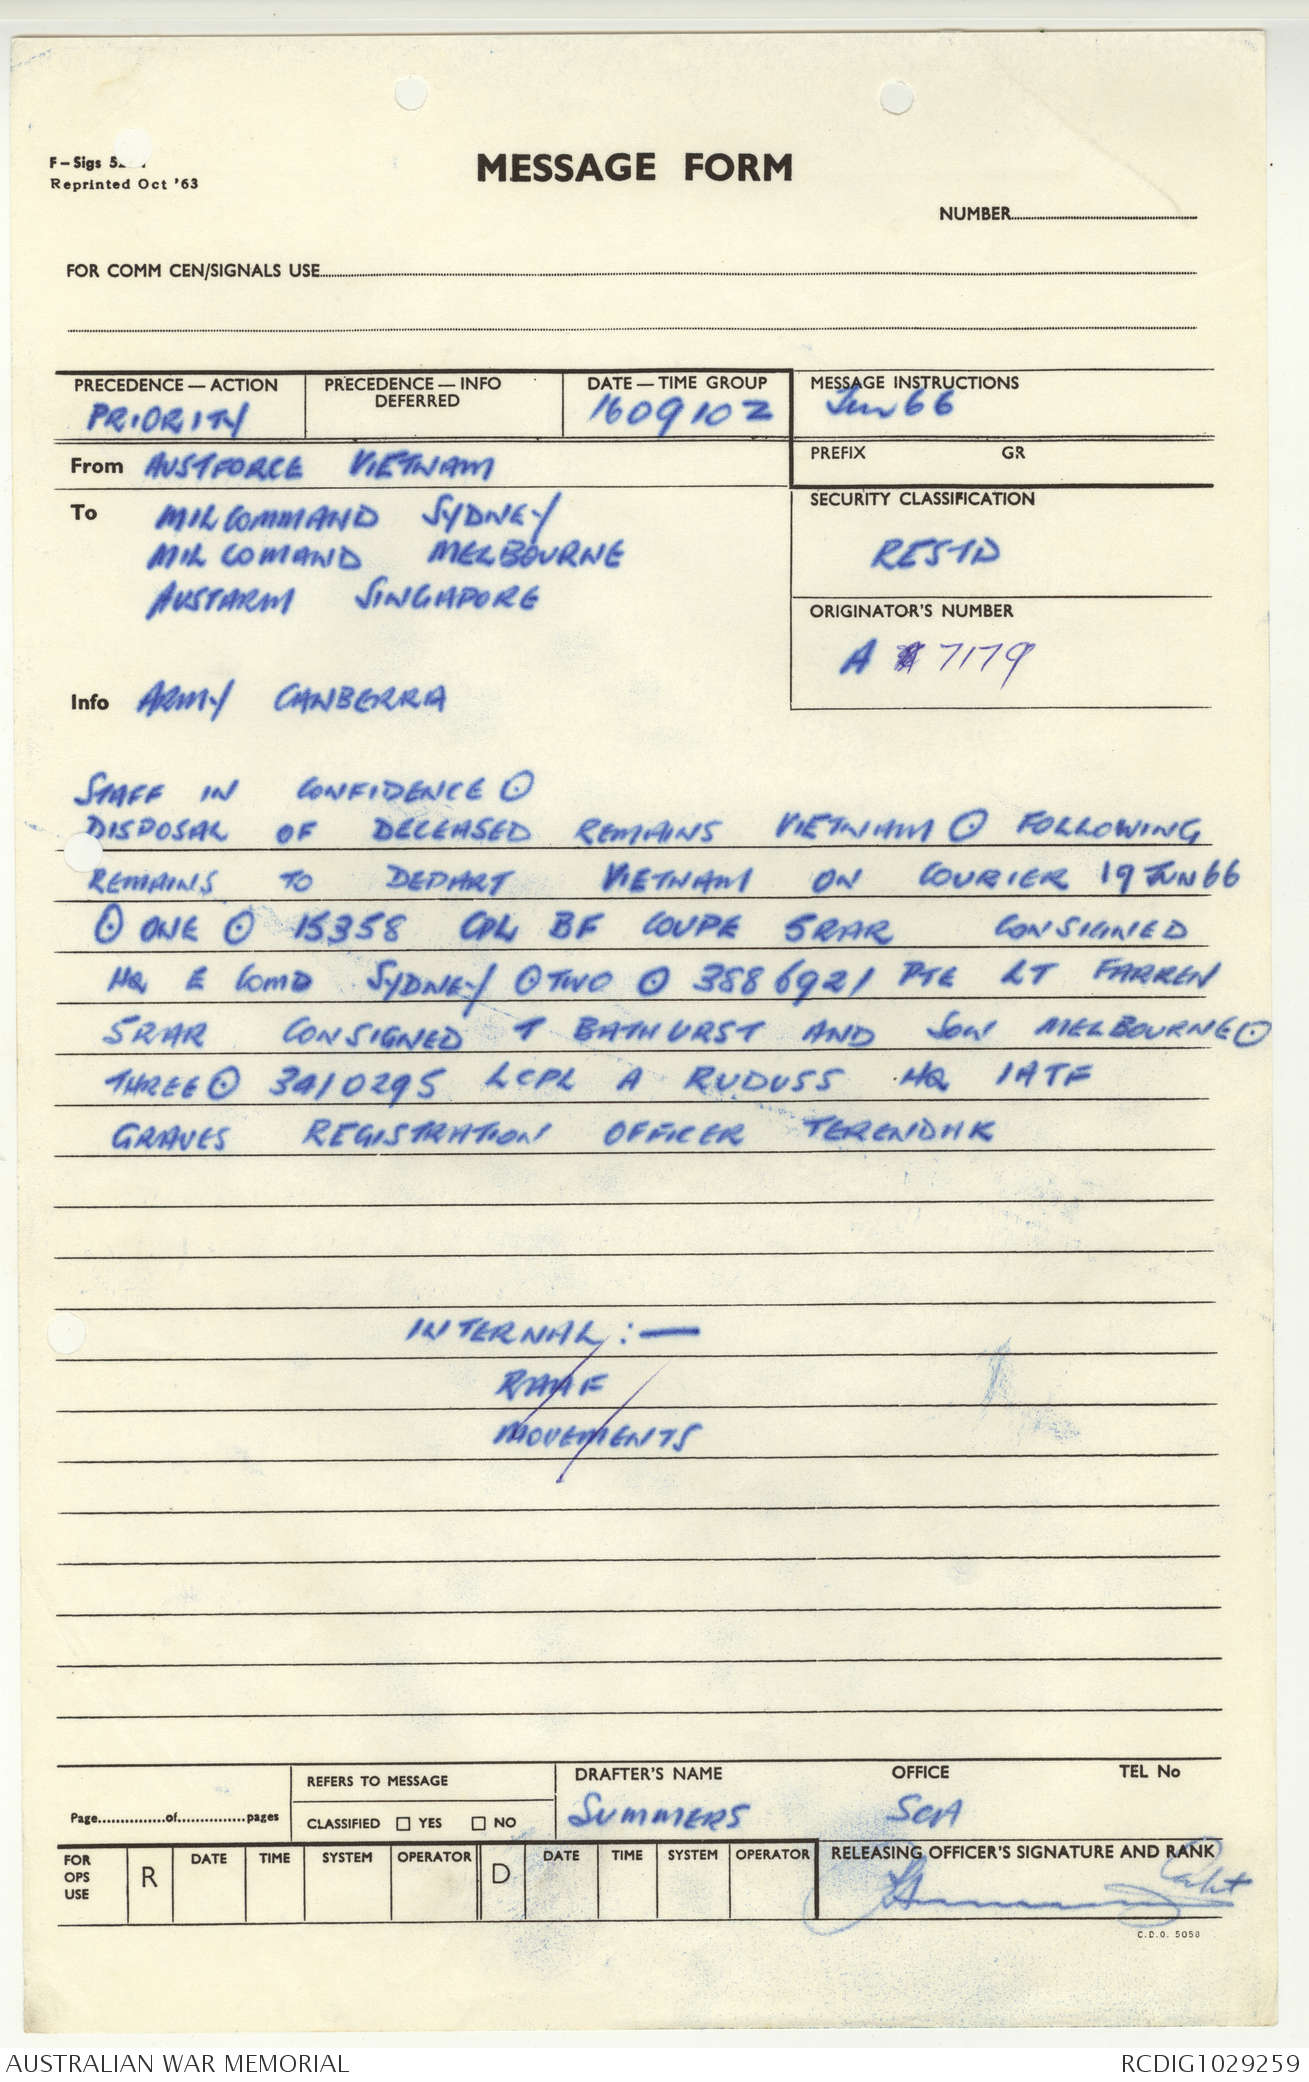 F - Sigs
Reprinted Oct '63
MESSAGE FORM
NUMBER
FOR COMM CEN/SIGNALS USE
PRECEDENCE — ACTION
PRIORITY
PRECEDENCE — INFO
DEFERRED
DATE — TIME GROUP
160910Z
MESSAGE INSTRUCTIONS
Jun 66
From AUSTFORCE VIETNAM
PREFIX GR
To MILCOMMAND SYDNEY
MILCOMAND MELBOURNE
AUSTARM SINGAPORE
SECURITY CLASSIFICATION
RESTD
ORIGINATOR'S NUMBER
A 7179
Info ARMY CANBERRA
STAFF IN CONFIDENCE ⊙
DISPOSAL OF DECEASED REMAINS VIETNAM ⊙ FOLLOWING
REMAINS TO DEPART VIETNAM ON COURIER 19 JUN 66
⊙ ONE ⊙ 15358 CPL BF COUPE 5RAR CONSIGNED
HQ E COMD SYDNEY ⊙ TWO ⊙ 3886921 PTE LT FARREN
5RAR CONSIGNED T BATHURST AND SON MELBOURNE ⊙
THREE ⊙ 3410295 LCPL A RUDUSS HQ 1ATF
GRAVES REGISTRATION OFFICER TERENDHK
INTERNAL :—
RAAF
MOVEMENTS
Page of pages
REFERS TO MESSAGE
CLASSIFIED YES NO
DRAFTER'S NAME
SUMMERS
OFFICE
SOA
TEL No
FOR OPS USE
R DATE TIME SYSTEM OPERATOR
D DATE TIME SYSTEM OPERATOR
RELEASING OFFICER'S SIGNATURE AND RANK
Capt
C.D.O. 5058
AUSTRALIAN WAR MEMORIAL
RCDIG1029259